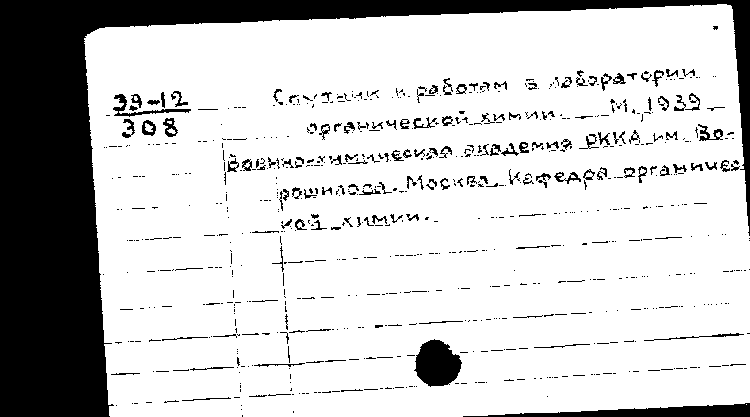 39-12
308
Спутник к работам в лаборатории
органической химии. М., 1939
Военно-химическая академия РККА им. Во-
рошилова. Москва. Кафедра органичес-
кой химии.